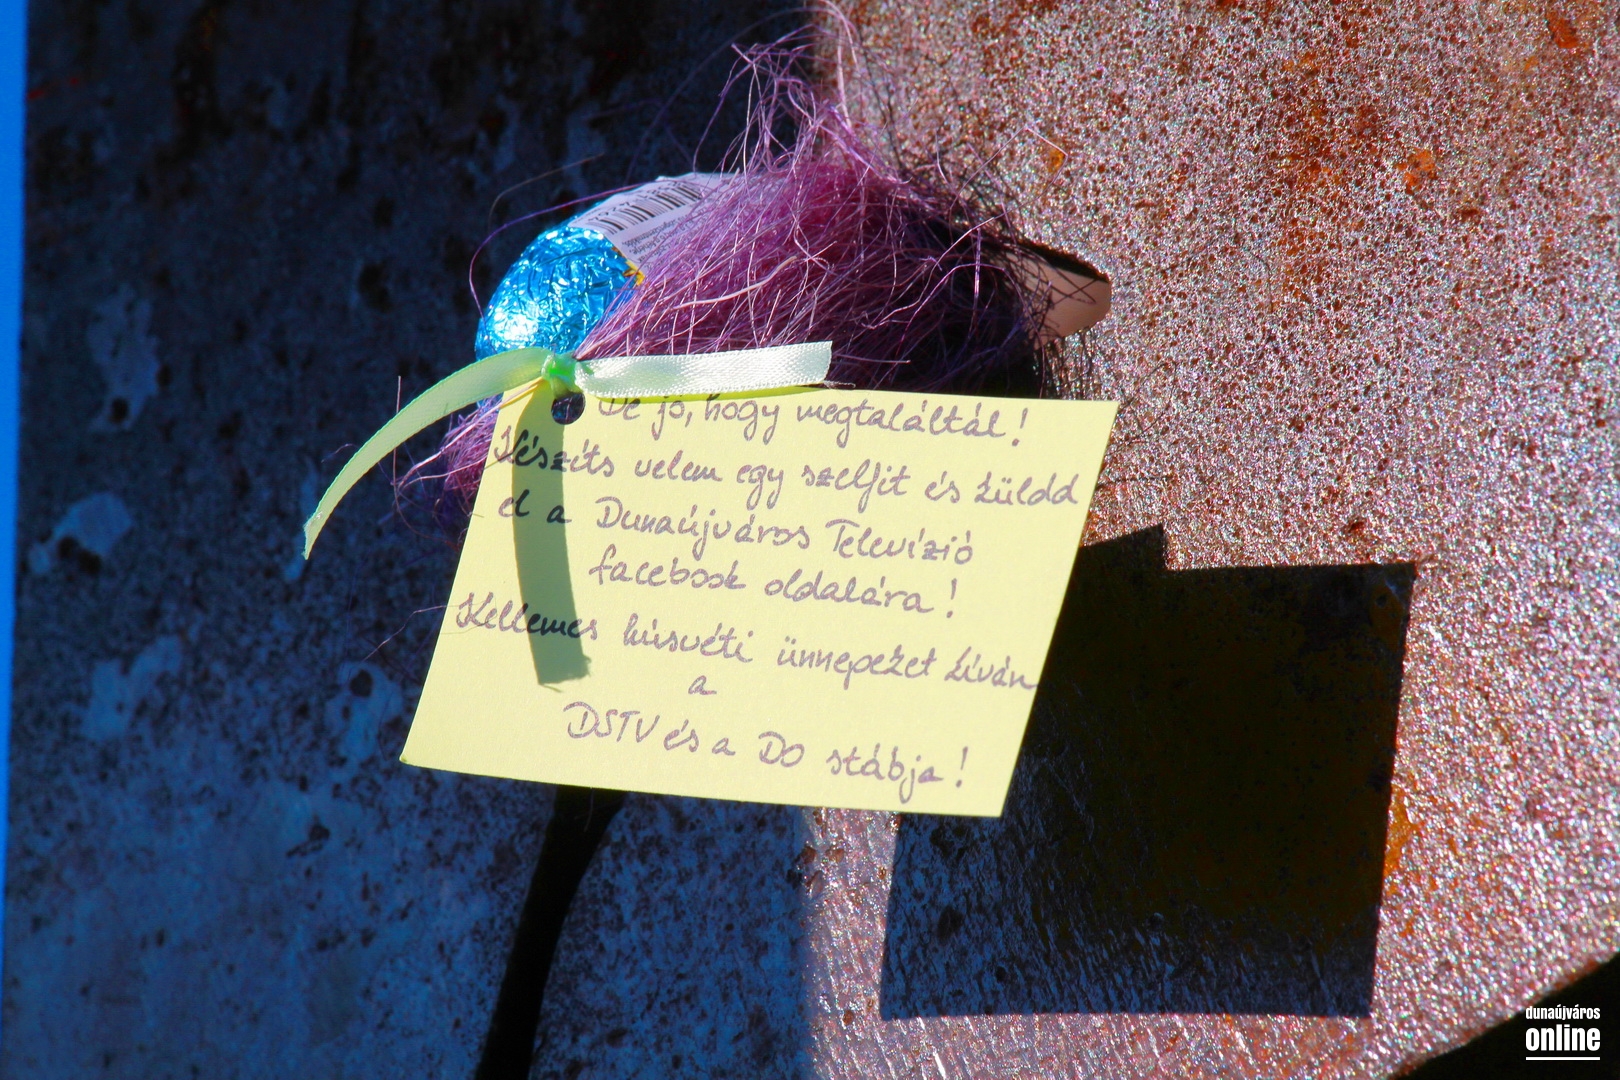 De jó, hogy megtaláltál!
Készíts velem egy szelfit és küldd
el a Dunaújváros Televízió
facebook oldalára!
Kellemes húsvéti ünnepeket kíván
a
DSTV és a DO stábja!
dunaújváros
online